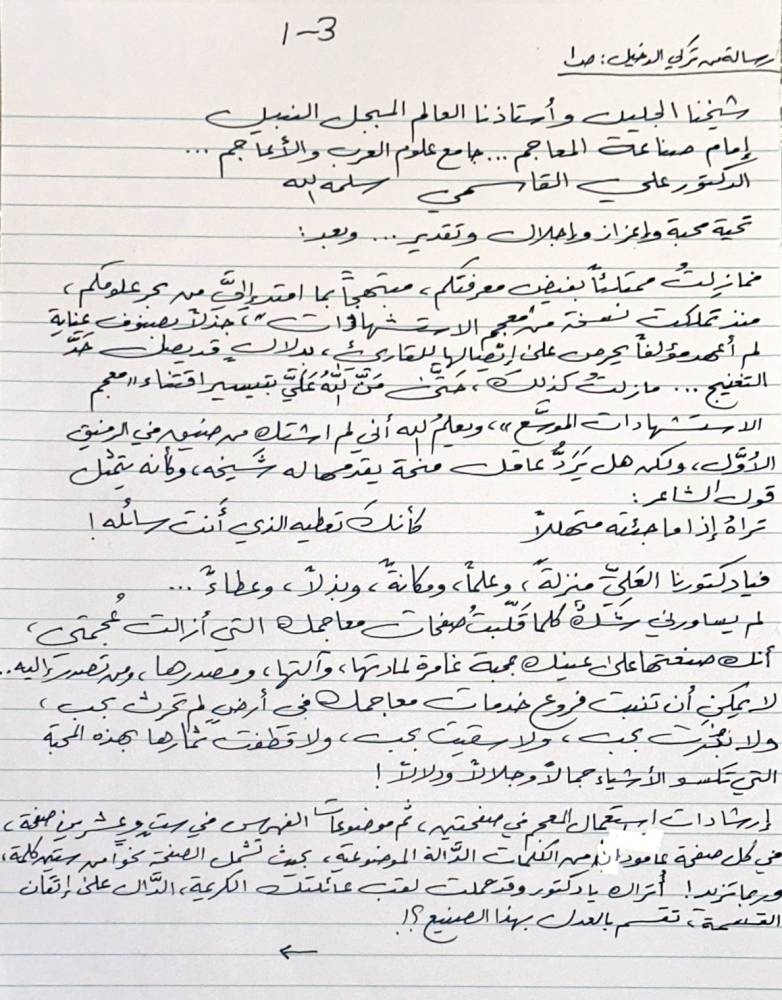 1-3
رسالة من تركي الدخيل: ص١
شيخنا الجليل وأستاذنا العالم المبجل النبيل
إمام صناعة المعاجم... جامع علوم العرب والأعاجم...
الدكتور علي القاسمي سلمه الله
تحية محبة وإعزاز وإجلال وتقدير... وبعد:
فمازلتُ ممتلئاً بفيض معرفتكم، مبتهجاً بما امتد إليَّ من بحر علومكم،
منذ تملكت نسخة من "معجم الاستشهادات"، جذلاً بصنوف عناية
لم أعهد مؤلفاً يحرص على إيصالها للقارئ، بدلالٍ قد يصل حَدَّ
التغنيج... مازلتُ كذلك، حتَّى مَنَّ اللَّهُ عَلَيَّ بتيسير اقتناء "معجم
الاستشهادات الموسَّع"، ويعلمُ الله أني لم اشتكِ من ضيق في الرفيق
الأوَّل، ولكن هل يَرُدُّ عاقل منحة يقدمها له شَيخه، وكأنه يتمثل
قول الشاعر:
تراهُ إذا ما جئته متهللاً كأنك تعطيه الذي أنت سائله!
فيا دكتورنا العَليّ منزلةً، وعلماً، ومكانةً، وبذلاً، وعطاءً...
لم يساورني شكٌ كلما قَلّبتُ صفحات معاجمك التي أزالت عُجمتي،
أنك صنعتها على عينك بمحبة غامرة لمادتها، وآلتها، ومصدرها، ومن تصدر إليه..
لا يمكن أن تنبت فروع خدمات معاجمك في أرضٍ لم تحرث بحب،
ولا بُذِرَت بحب، ولا سقيت بحب، ولا قطفت ثمارها بهذه المحبة
التي تكسو الأشياء جمالاً وجلالاً ودلالاً!
إرشادات استعمال المعجم في صفحتين، ثم موضوعات الفهرس في ستٍ وعشرين صفحة،
في كل صفحة عامودان من الكلمات الدَّالة الموضوعية، بحيث تشمل الصفحة نحواً من ستين كلمة،
وربما تزيد! أتراك يا دكتور وقد حملت لقب عائلتك الكريمة، الدَّال على إتقان
القسمة، تقسم بالعدل بهذا الصنيع؟!
←